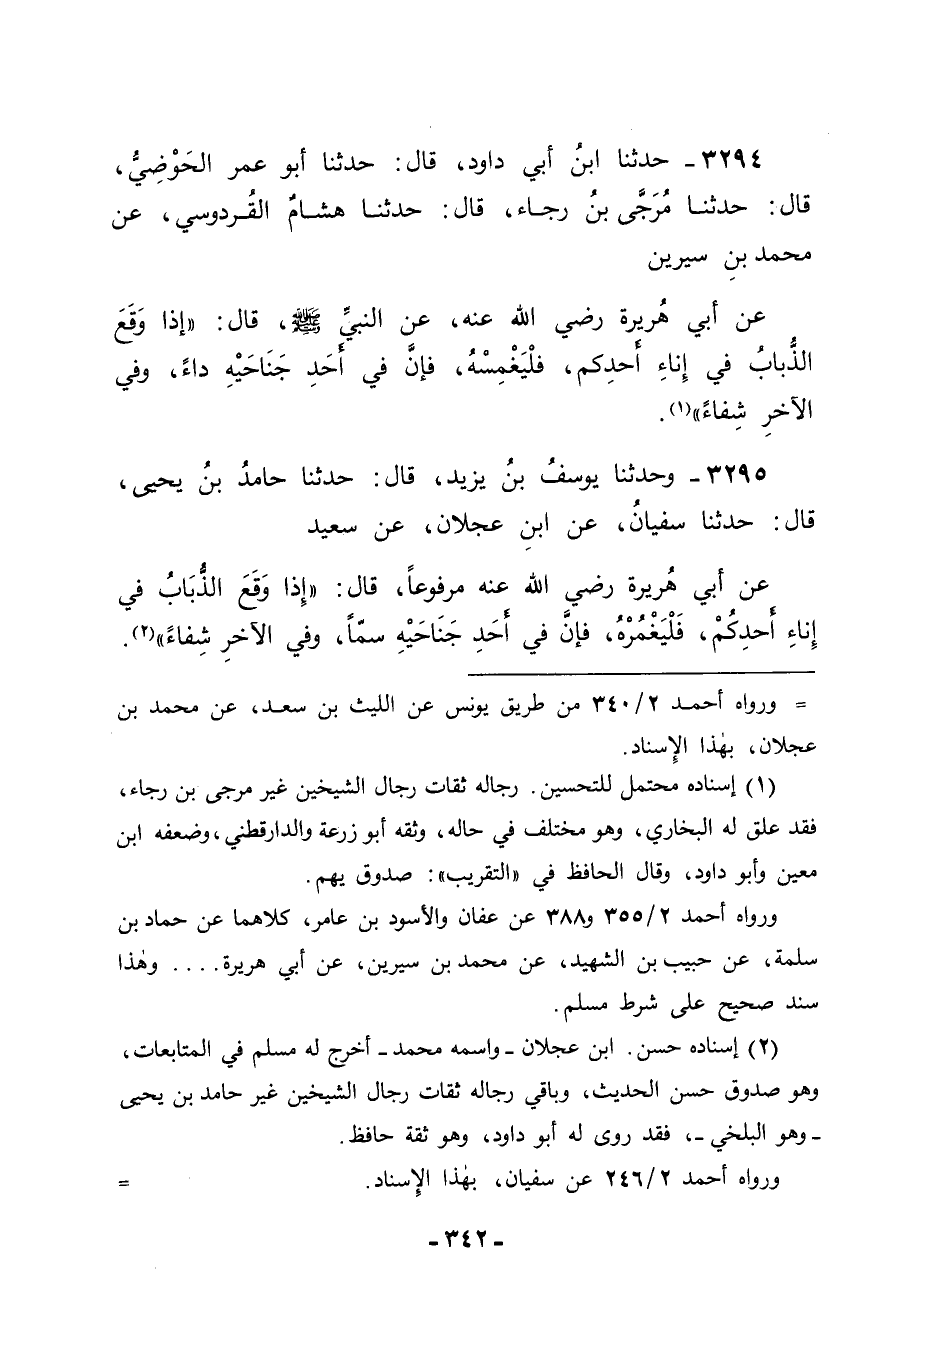 ٣٢٩٤ ـ حدثنا ابنُ أبي داود، قال: حدثنا أبو عمر الحَوْضِيُّ،
قال: حدثنـا مُرَجَّى بنُ رجـاء، قال: حدثنـا هشـامٌ القُـردوسي، عن
محمد بنِ سيرين
عن أبي هُريرة رضي الله عنه، عن النبيِّ ﷺ، قال: «إذا وَقَعَ
الذُّبابُ في إِناءِ أَحدِكم، فلْيَغْمِسْهُ، فإنَّ في أَحَدِ جَنَاحَيْهِ داءً، وفي
الآخرِ شِفاءً»(١).
٣٢٩٥ ـ وحدثنا يوسفُ بنُ يزيد، قال: حدثنا حامدُ بنُ يحيى،
قال: حدثنا سفيانُ، عن ابنِ عجلان، عن سعيد
عن أبي هُريرة رضي الله عنه مرفوعاً، قال: «إِذا وَقَعَ الذُّبَابُ في
إِناءِ أَحدِكُمْ، فَلْيَغْمُرْهُ، فإنَّ في أَحَدِ جَنَاحَيْهِ سمّاً، وفي الآخرِ شِفاءً»(٢).
= ورواه أحمـد ٣٤٠/٢ من طريق يونس عن الليث بن سعـد، عن محمد بن
عجلان، بهٰذا الإِسناد.
(١) إسناده محتمل للتحسين. رجاله ثقات رجال الشيخين غير مرجى بن رجاء،
فقد علق له البخاري، وهو مختلف في حاله، وثقه أبو زرعة والدارقطني، وضعفه ابن
معين وأبو داود، وقال الحافظ في «التقريب»: صدوق يهم.
ورواه أحمد ٣٥٥/٢ و٣٨٨ عن عفان والأسود بن عامر، كلاهما عن حماد بن
سلمة، عن حبيب بن الشهيد، عن محمد بن سيرين، عن أبي هريرة.... وهٰذا
سند صحيح على شرط مسلم.
(٢) إسناده حسن. ابن عجلان ـ واسمه محمد ـ أخرج له مسلم في المتابعات،
وهو صدوق حسن الحديث، وباقي رجاله ثقات رجال الشيخين غير حامد بن يحيى
ـ وهو البلخي ـ، فقد روى له أبو داود، وهو ثقة حافظ.
ورواه أحمد ٢٤٦/٢ عن سفيان، بهٰذا الإِسناد. =
ـ ٣٤٢ ـ